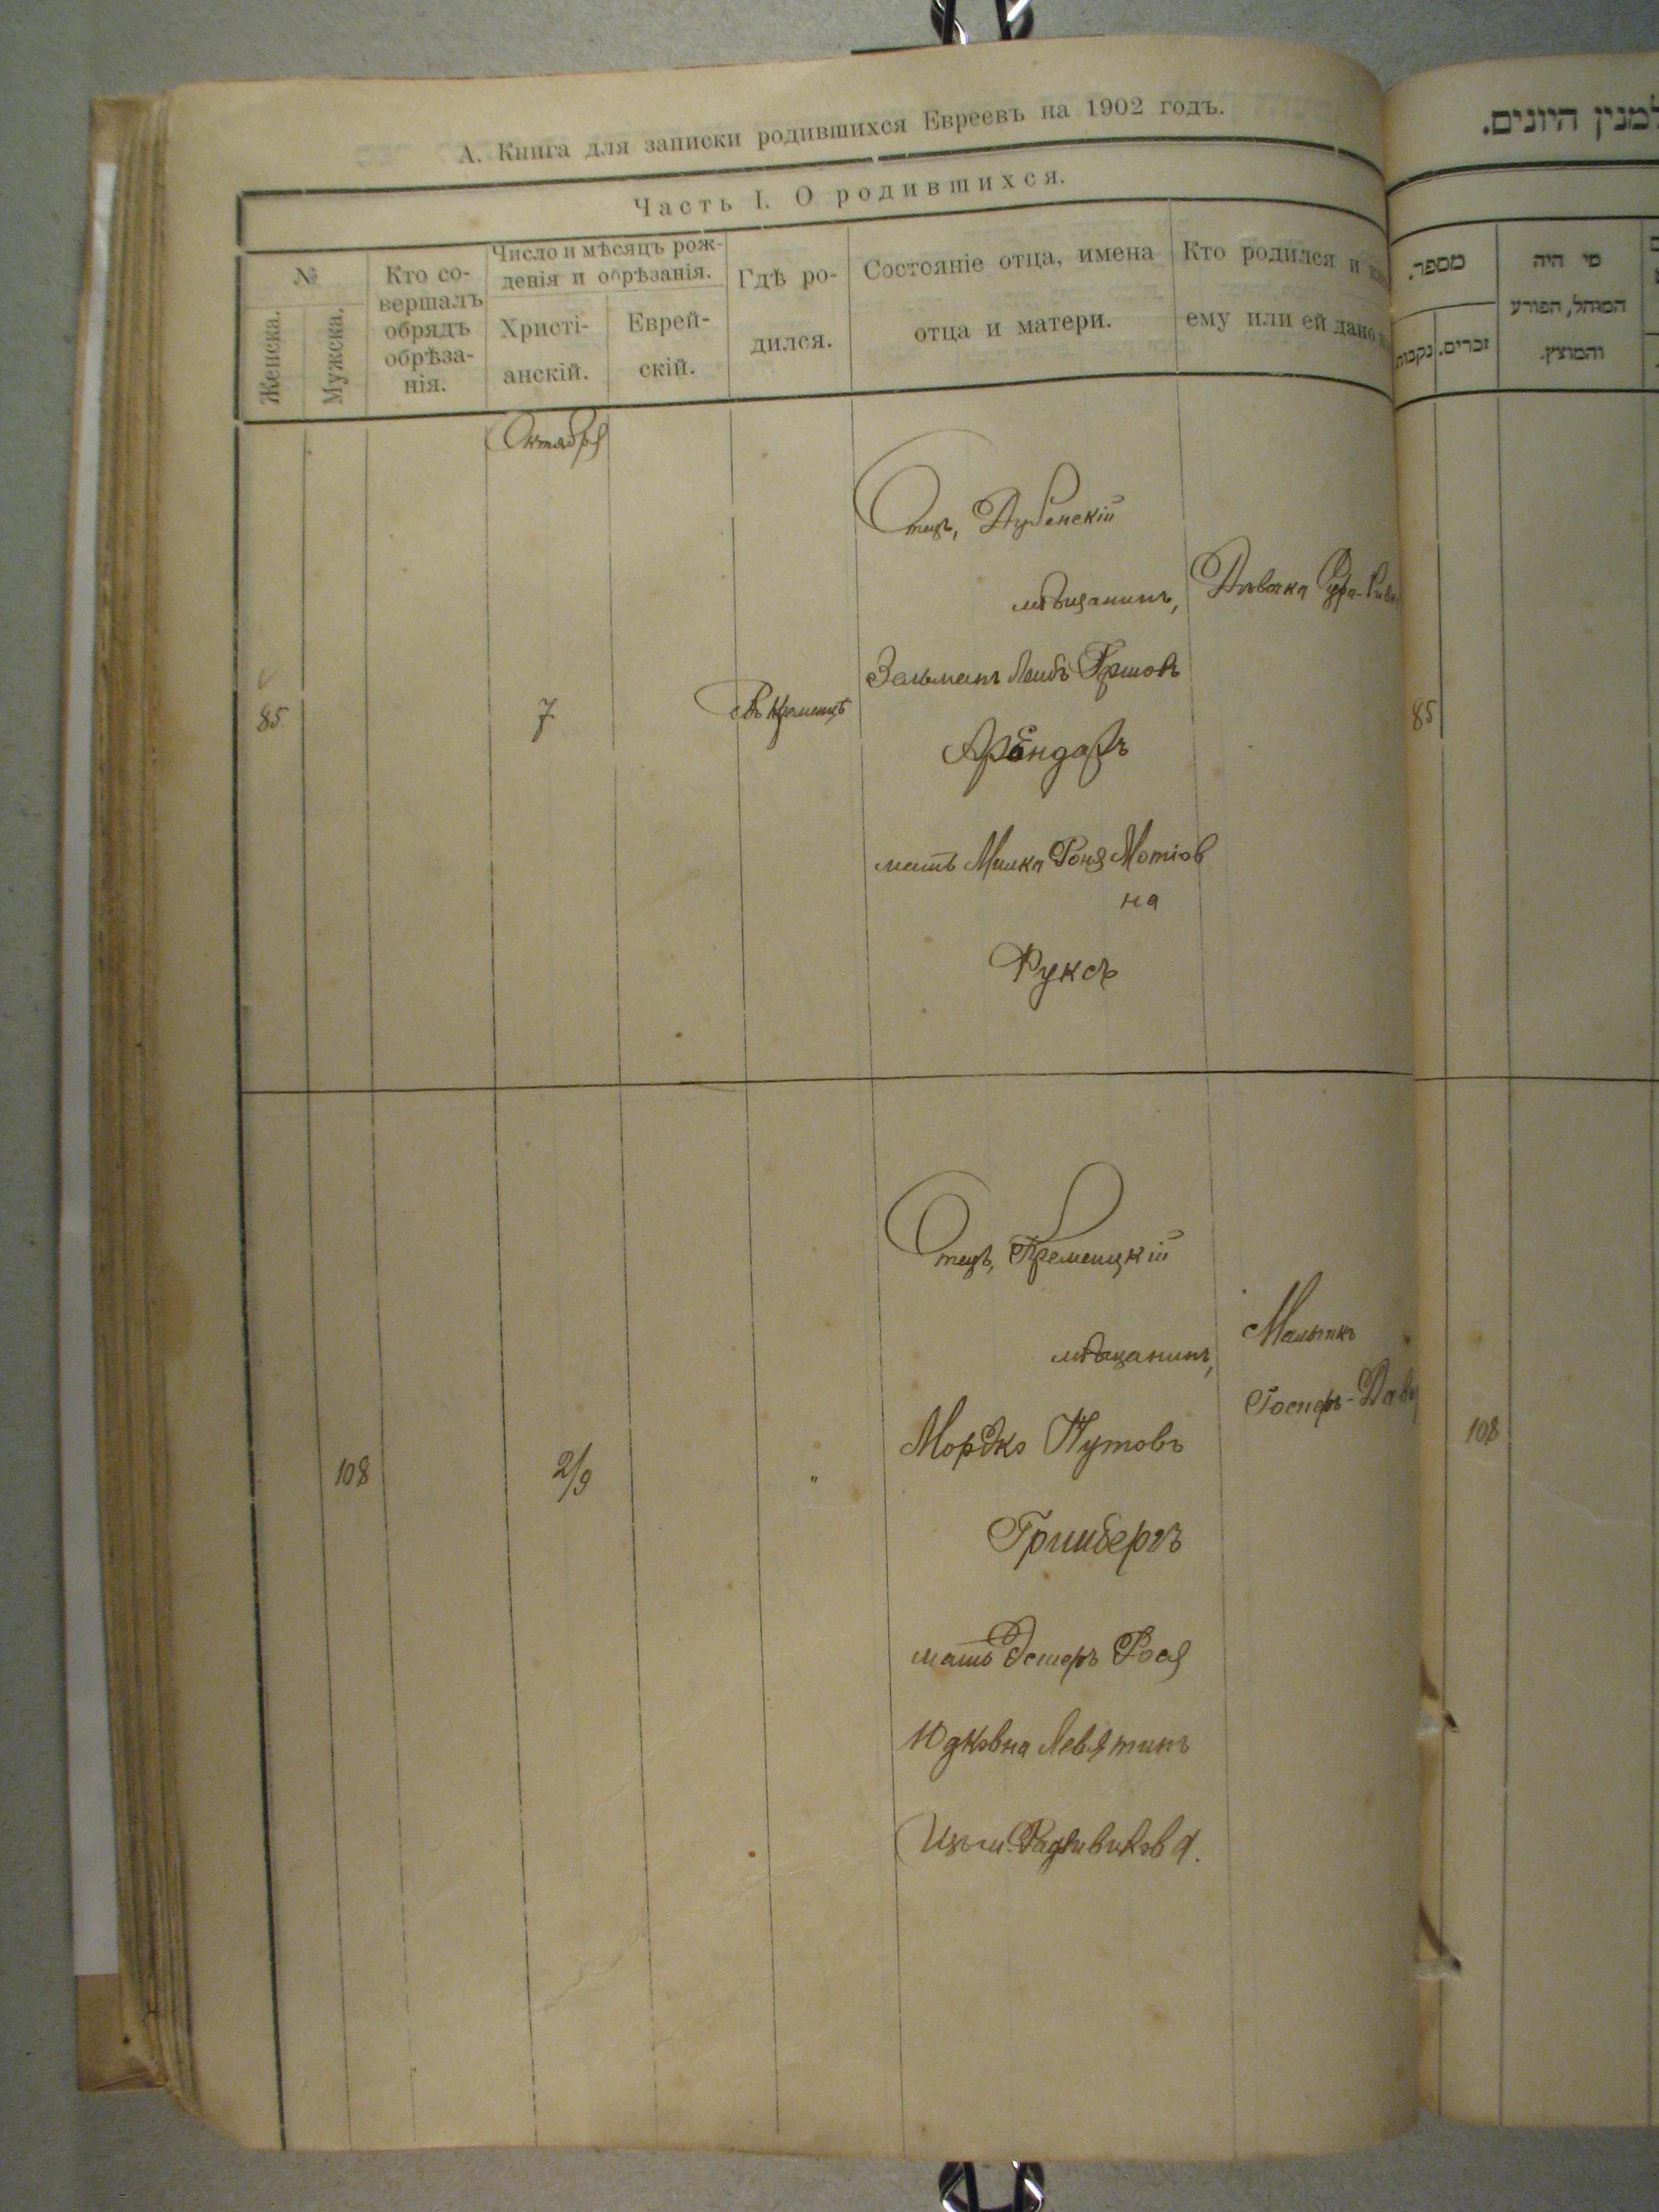 А. Книга для записки родившихся Евреевъ на 1902 годъ.
Часть I. О родившихся.
№
Женска.
Мужска.
Кто со-
вершалъ
обрядъ
обрѣза-
нія.
Число и мѣсяцъ рож-
денія и обрѣзанія.
Христі-
анскій.
Еврей-
скій.
Гдѣ ро-
дился.
Состояніе отца, имена
отца и матери.
Кто родился и
ему или ей дано
Октября
85
7
Въ Кременцѣ
Отецъ, Дубенскій
мѣщанинъ,
Зельманъ Лейбъ Гершовъ
Арендаръ
мать Малка Роня Мотіов
на
Фуксъ
Дѣвочка Сура-
108
2/9
"
Отецъ, Кременецкій
мѣщанинъ,
Мордко Нутовъ
Гринбергъ
мать Эстеръ Рося
Юдковна Левятинъ
Изъ м. Радзивилова.
Мальчикъ
למנין היונים.
מספר.
נקבות
זכרים.
מי היה
המוהל, הפורע
והמוצץ.
85
108